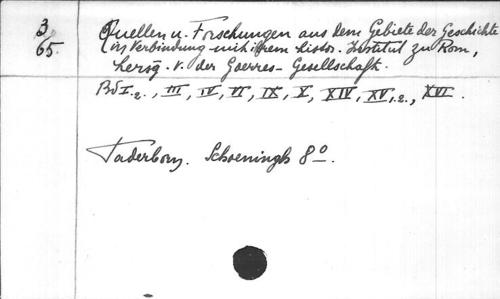 3/65. Quellen u. Forschungen aus dem Gebiete der Geschichte
in Verbindung mit ihrem histor. Institut zu Rom,
herausg. v. der Goerres-Gesellschaft.
Bd I.2., III, IV, VI, IX, X, XIV, XV,1.2., XVI.
Paderborn. Schoeningh 8°.